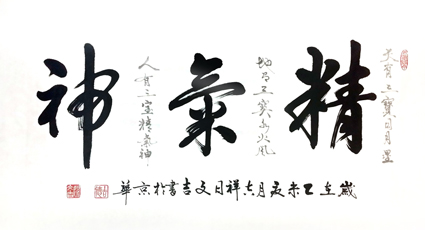 精氣神
天有三寶日月星
地有三寶水火風
人有三寶精氣神
歲在乙未夏月吉祥日文吉書於京華